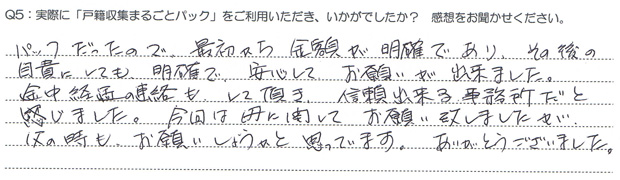 Q5：実際に「戸籍収集まるごとパック」をご利用いただき、いかがでしたか？ 感想をお聞かせください。
パックだったので、最初から金額が明確であり、その後の
自費にしても、明確で、安心してお願いが出来ました。
途中経過の連絡もして頂き、信頼出来る事務所だと
感じました。今回は母に関してお願い致しましたが、
父の時も、お願いしようかと思っています。ありがとうございました。